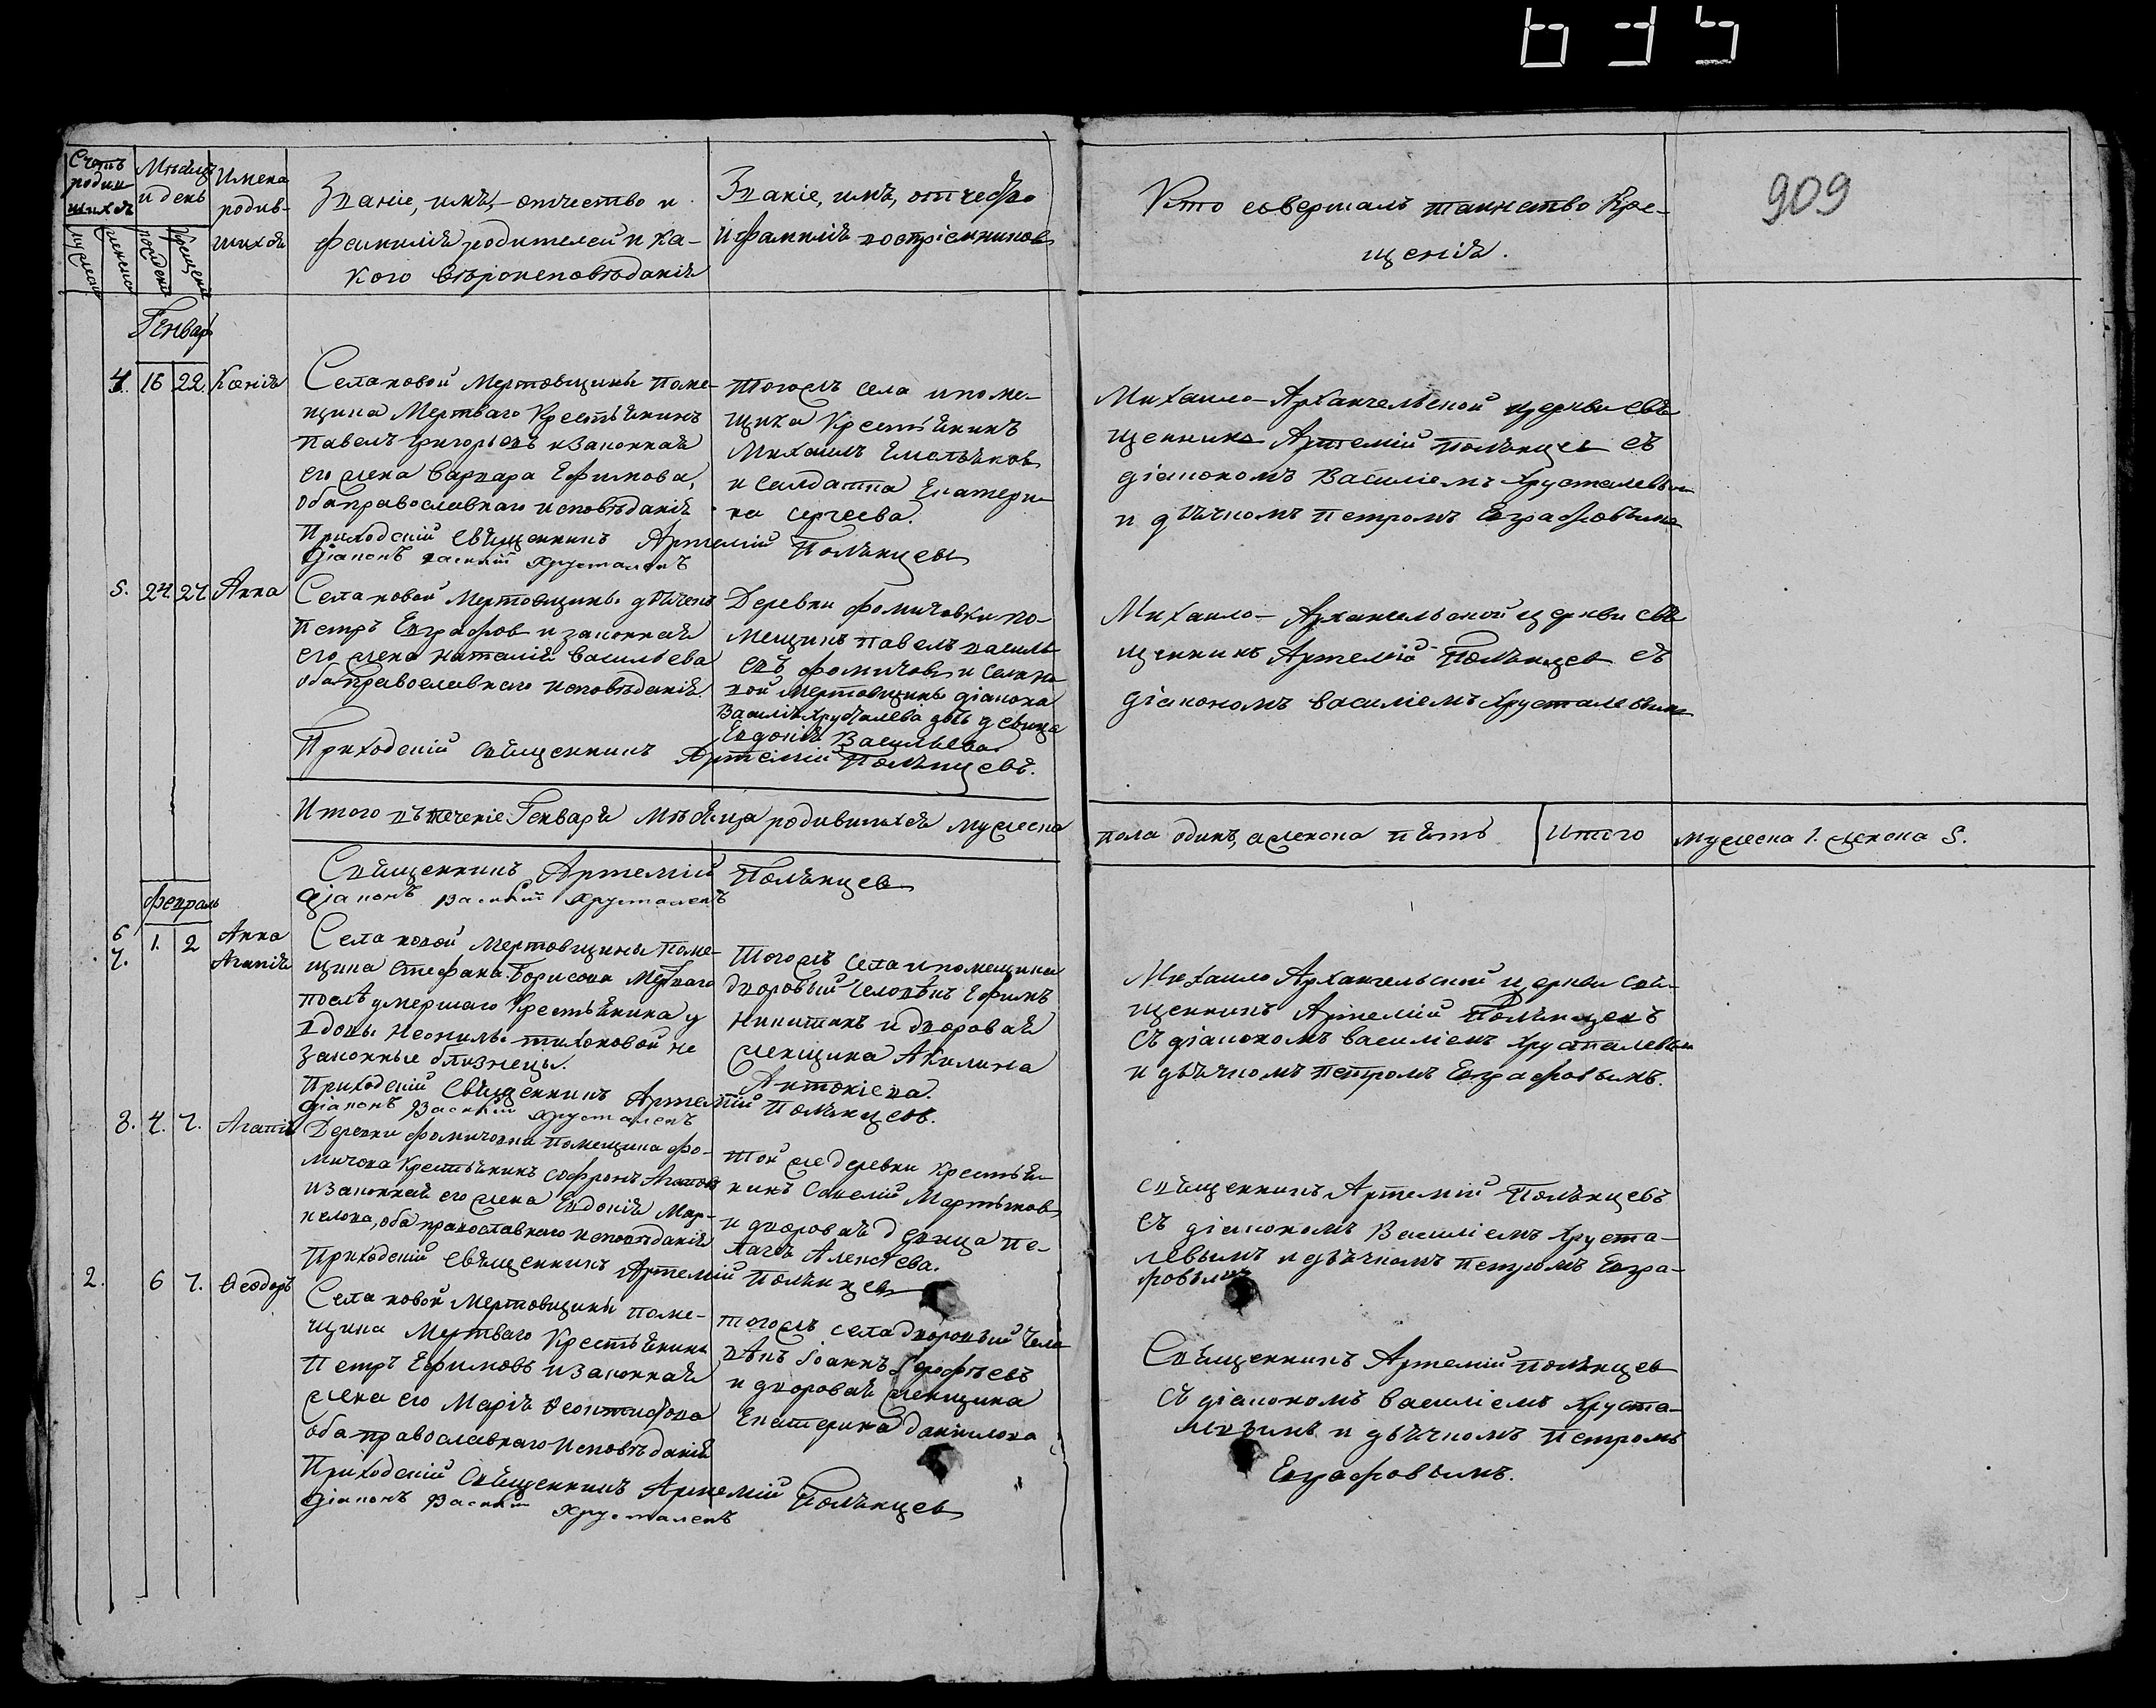 635
909
Счетъ родившихся
мужеска
женска
Мѣсяцъ и день
рожденія
крещенія
Имена родив-
шихся
Званіе, имя, отчество и
фамилія родителей и ка-
кого вѣроисповѣданія
Званіе, имя, отчество
и фамилія воспріемниковъ
Кто совершалъ таинство Кре-
щенія.
Генварь
4. 16 22. Ксенія
Села новой Мертовщины поме-
щика Мертваго Крестьянинъ
Павелъ Григорьевъ и законная
его жена Варвара Ефимова,
оба православнаго исповѣданія
Приходскій Священникъ Артемій Полянцевъ
Діаконъ Василій Хрусталевъ
Тогожъ села и поме-
щика Крестьянинъ
Михаилъ
и салдатка Екатери-
на Сергеева.
Михаило-Архангельской церкви свя
щенникъ Артемій Полянцевъ съ
діакономъ Василіемъ Хрусталевымъ
и дьячкомъ Петромъ Евграфовымъ
5. 24. 27. Анна
Села новой Мертовщины дьячекъ
Петръ Евграфовъ и законная
его жена Наталія Васильева
оба православнаго исповѣданія.
Приходскій Священникъ Артемій Полянцевъ.
Деревни Фомичовки по-
мещикъ Павелъ Василь
евъ Фомичовъ и села но
вой Мертовщины діакона
Василія Хрусталева дочь девица
Евдокія Васильева.
Михаило-Архангельской церкви свя
щенникъ Артемій Полянцевъ съ
діакономъ Василіемъ Хрусталевымъ
Итого въ теченіе Генваря Мѣсяца родившихся мужеска
пола одинъ, а женска пять Итого мужеска 1. женска 5.
Священникъ Артемій Полянцевъ
Діаконъ Василій Хрусталевъ
Февраль
6 7. 1. 2 Анна
Агапія
Села новой Мертовщины поме-
щика Стефана Борисова Мертваго
послѣ умершаго Крестьянина у
вдовы Неонилы Тихоновой не
законные близнецы.
Приходскій Священникъ Артемій Полянцевъ.
Діаконъ Василій Хрусталевъ
Тогожъ села и помещика
дворовый человѣкъ Ефимъ
Никитинъ и дворовая
женщина Акилина
Антоніева.
Михаило Архангельской церкви Свя-
щенникъ Артемій Полянцевъ
съ діакономъ Василіемъ Хрусталевым
и дьячкомъ Петромъ Евграфовымъ.
8. 4. 7. Агапія
Деревни Фомичовки помещика Фо-
мичова Крестьянинъ Софронъ
и законная его жена Евдокія Мар-
келова, оба православнаго исповѣданія
Приходскій Священникъ Артемій Полянцевъ
той же деревни Крестья-
нинъ Савелій Мартыновъ
и дворовая девица Пе-
лагія Алексѣева.
Священникъ Артемій Полянцевъ
съ діакономъ Василіемъ Хруста-
левымъ и дьячкомъ Петромъ Евгра-
фовымъ
2. 6 7. Ѳеодоръ
Села новой Мертовщины поме-
щика Мертваго Крестьянинъ
Петръ Ефимовъ и законная
жена его Марія
оба православнаго исповѣданія
Приходскій Священникъ Артемій Полянцевъ
Діаконъ Василій Хрусталевъ
тогожъ села дворовый чело
вѣкъ Іоаннъ
и дворовая женщина
Екатерина Данилова
Священникъ Артемій Полянцевъ
съ діакономъ Василіемъ Хруста-
левымъ и дьячкомъ Петромъ
Евграфовымъ.